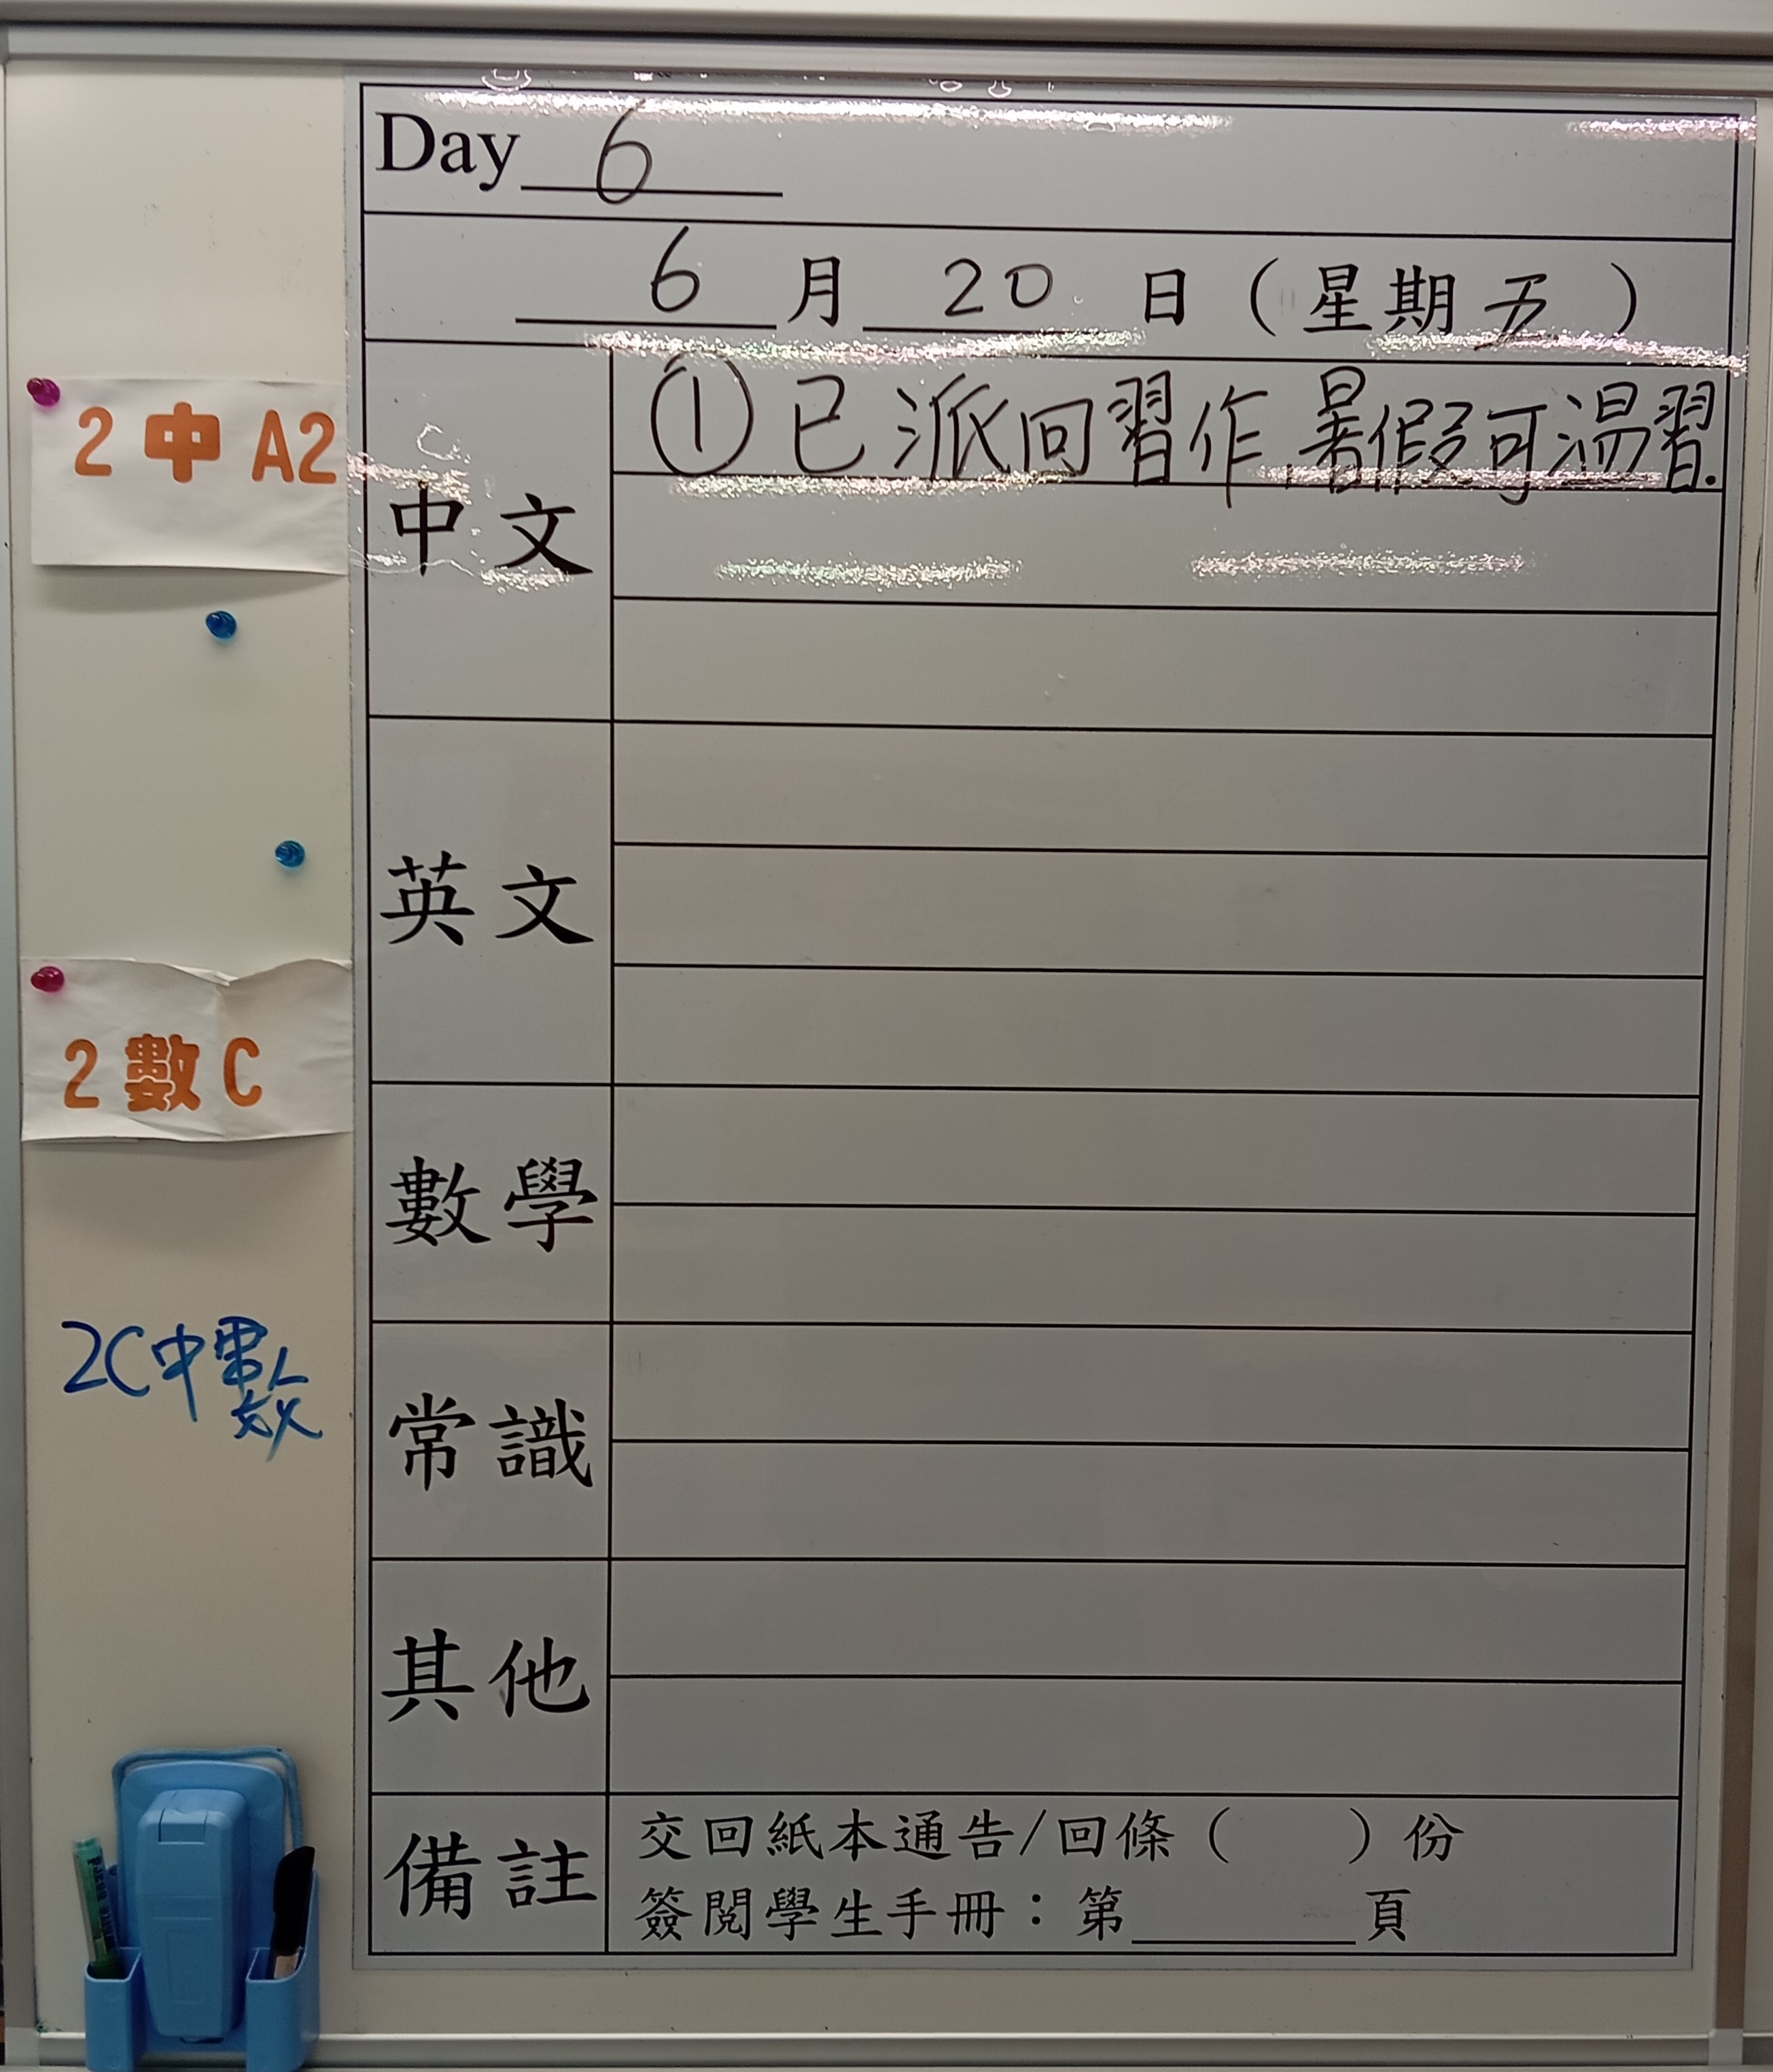 Day 6
6 月 20 日 ( 星期五 )
2 中 A2
中文
① 已派回習作 暑假可温習.
英文
2 數 C
數學
2C中數
常識
其他
備註
交回紙本通告/回條 (  ) 份
簽閱學生手冊：第______頁